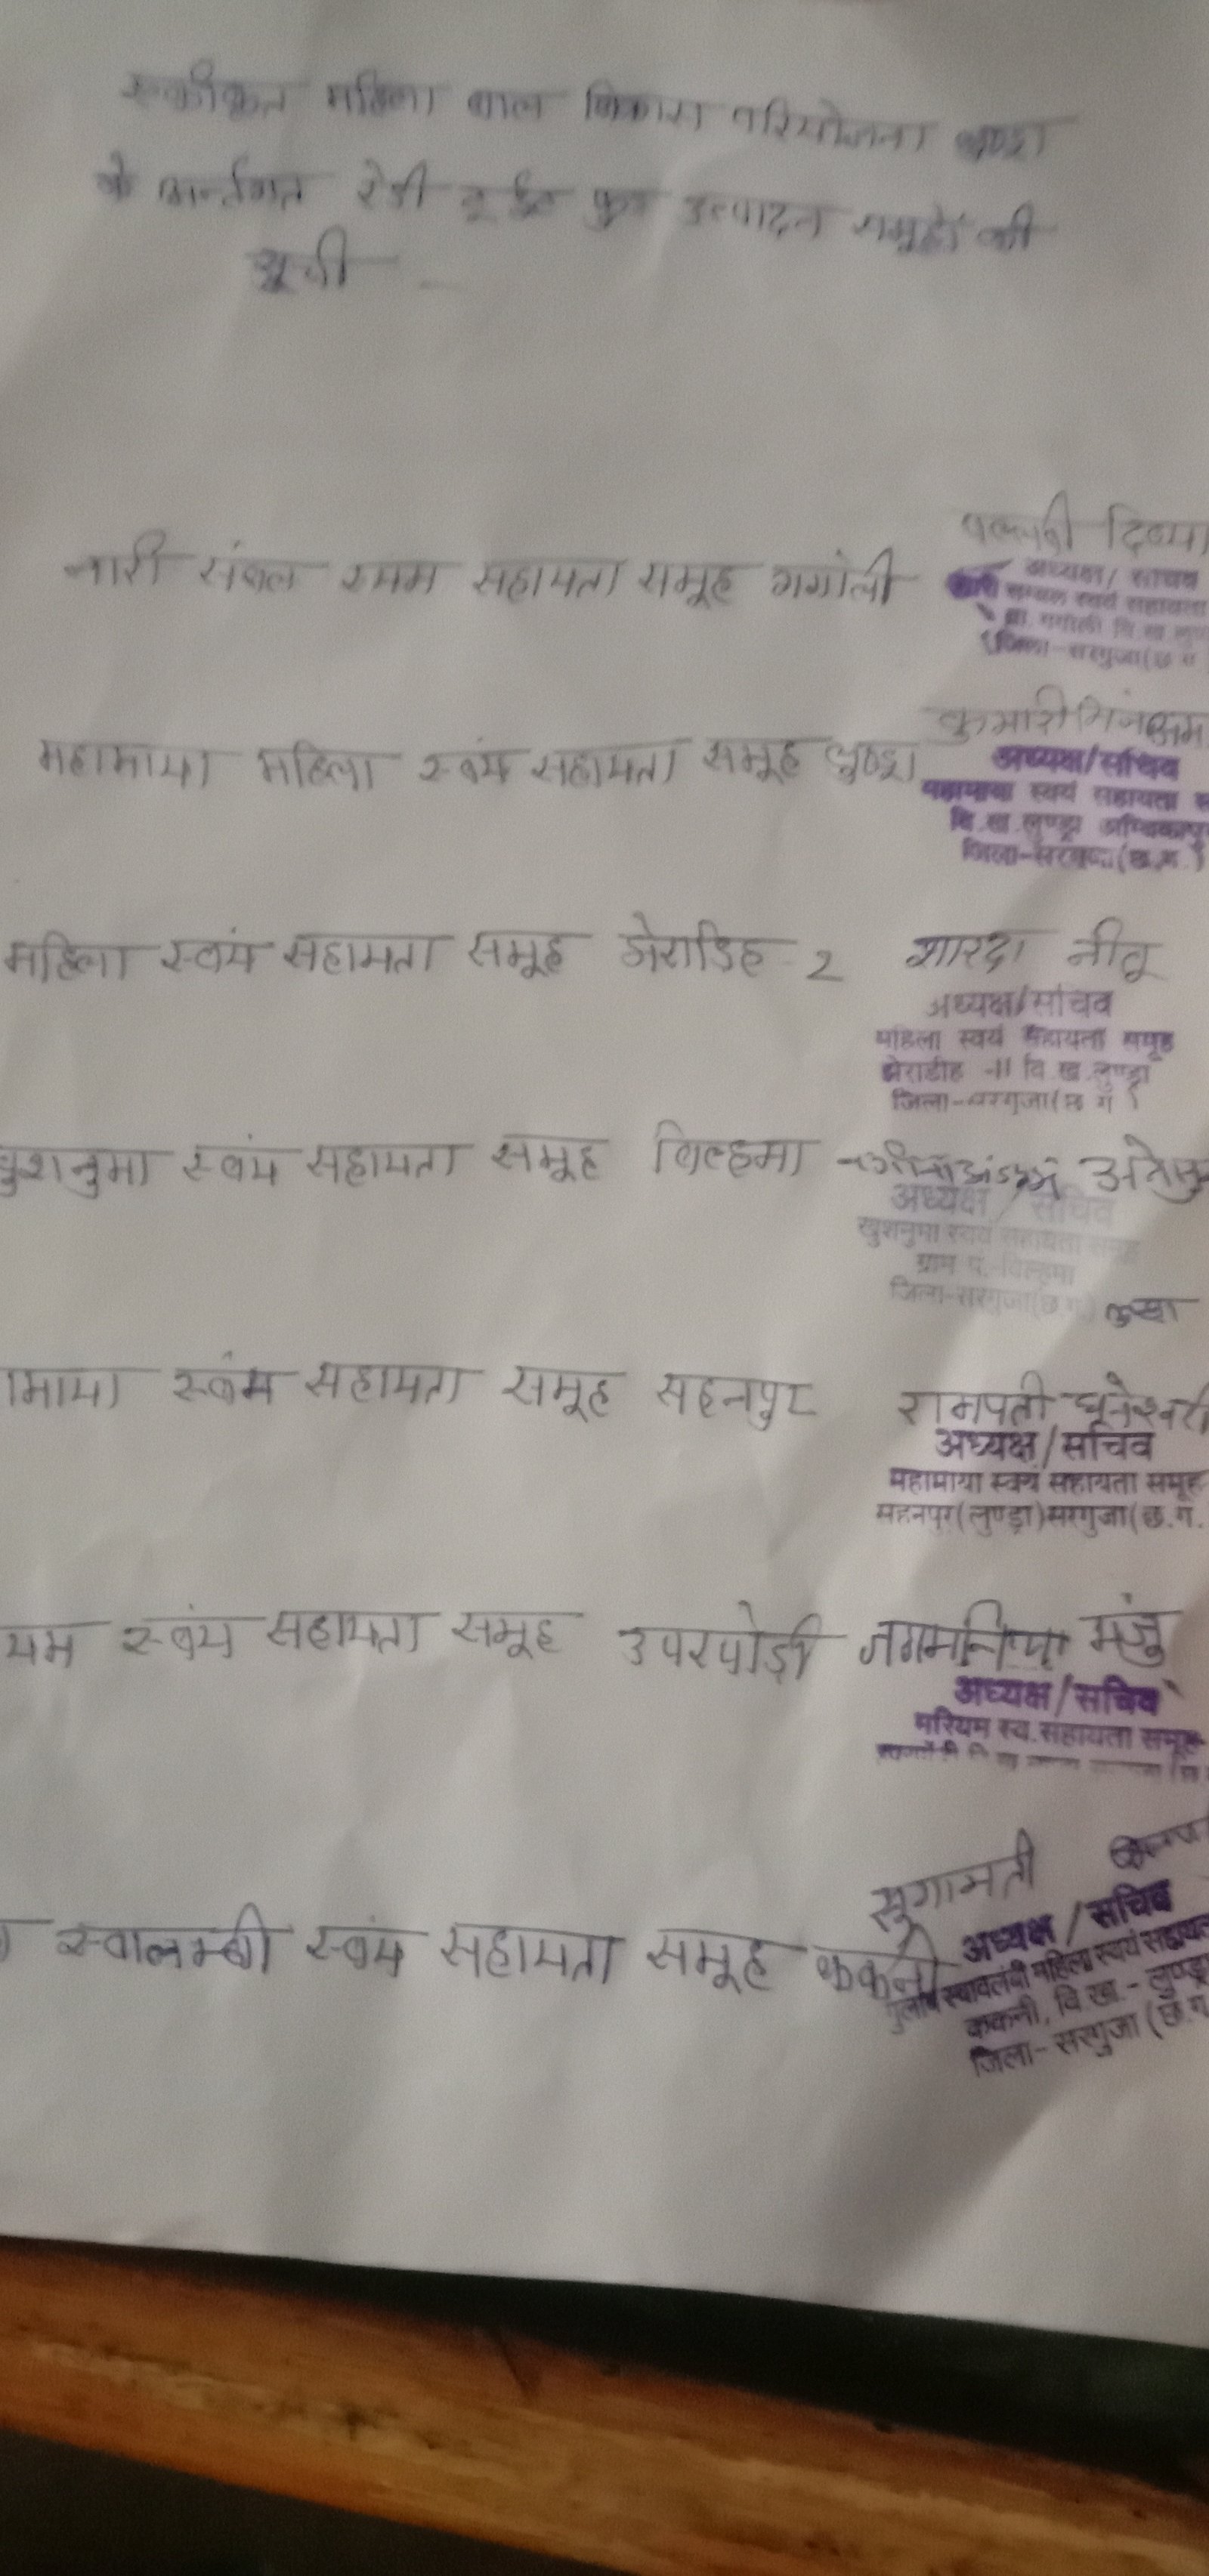 एकीकृत महिला बाल विकास परियोजना लुण्ड्रा
के अर्न्तगत रेडी टू ईट फुड उत्पादन समूहों की
सूची
दिव्या
नारी संबल स्वयम सहायता समूह गगोली
अध्यक्ष/ सचिव
सम्बल स्वयं सहायता
ग्रा. गगोली वि.ख.
जिला-सरगुजा(छ.ग
कुमारी
महामाया महिला स्वंय सहायता समूह लुण्ड्रा
अध्यक्ष/सचिव
महामाया स्वयं सहायता स
वि.ख.लुण्ड्रा अम्बिकापु
जिला-सरगुजा(छ.ग.)
महिला स्वंय सहायता समूह झेराडिह - 2 शारदा नीतू
अध्यक्ष/सचिव
महिला स्वयं सहायता समूह
झेराडीह -II वि.ख.लुण्ड्रा
जिला-सरगुजा(छ ग )
खुशनुमा स्वंय सहायता समूह विल्हमा
अध्यक्ष / सचिव
खुशनुमा स्वयं सहायता समूह
ग्राम पं.-विल्हमा
जिला-सरगुजा(छ.ग.)
ामाया स्वंय सहायता समूह सहनपुर रामपती धनेश्वरी
अध्यक्ष/सचिव
महामाया स्वयं सहायता समूह
सहनपुर(लुण्ड्रा)सरगुजा(छ.ग.
यम स्वंय सहायता समूह उपरपोड़ी जगमनिया मंजु
अध्यक्ष/सचिव
मरियम स्व.सहायता समूह
सुगामती
स्वालम्बी स्वंय सहायता समूह ककनी
अध्यक्ष/सचिव
गुलाब स्वावलंबी महिला स्वयं सहायत
ककनी, वि.ख.- लुण्ड्रा
जिला- सरगुजा (छ.ग